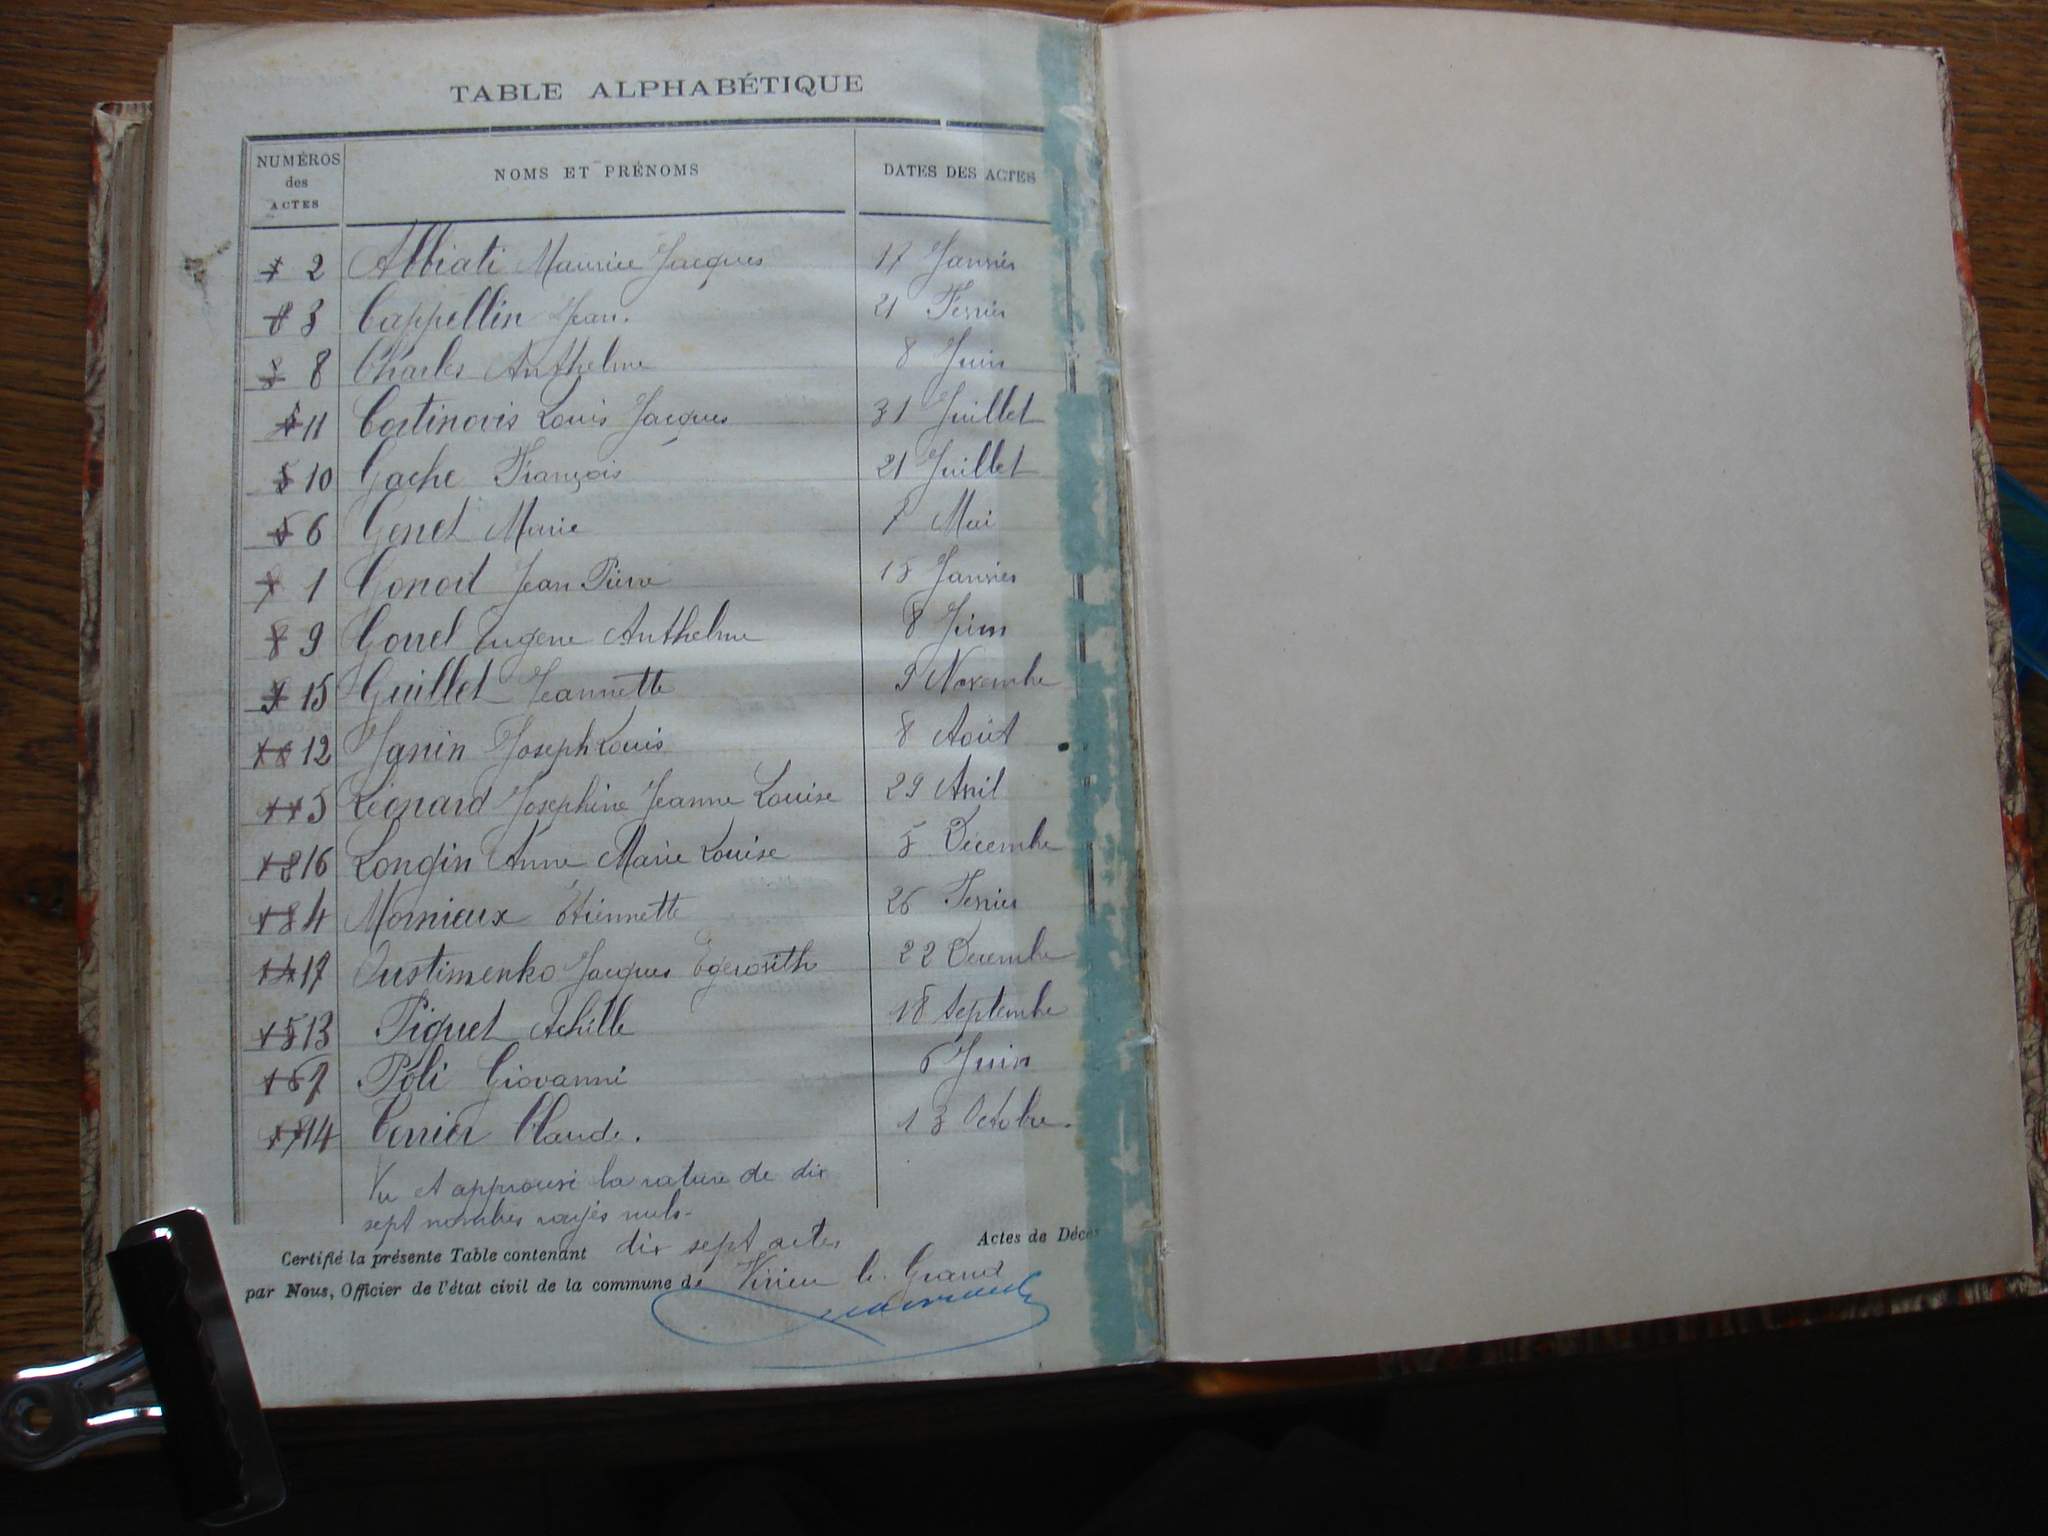 TABLE ALPHABÉTIQUE
NUMÉROS des ACTES NOMS ET PRÉNOMS DATES DES ACTES
2 Abbiati Maurice Jacques 17 Janvier
3 Cappellin Jean. 21 Fevrier
8 Charles Anthelme 8 Juin
11 Cortinovis Louis Jacques 31 Juillet
10 Gache François 21 Juillet
6 Genet Marie 7 Mai
1 Gonod Jean Pierre 15 Janvier
9 Gonet Eugène Anthelme 8 Juin
15 Guillet Jeannette 9 Novembre
12 Janin Joseph Louis 8 Août
5 Léonard Josephine Jeanne Louise 29 Avril
16 Longin Anne Marie Louise 5 Décembre
4 Mornieux Etiennette 26 Fevrier
17 Oustimenko Jacques 22 Decembre
13 Piquet Achille 18 Septembre
7 Poli Giovanni 6 Juin
14 Claude. 13 Octobre.
Vu et approuvé la rature de dix
sept nombres rayés nuls.
Certifié la présente Table contenant dix sept actes Actes de Décès
par Nous, Officier de l'état civil de la commune de Virieu le Grand